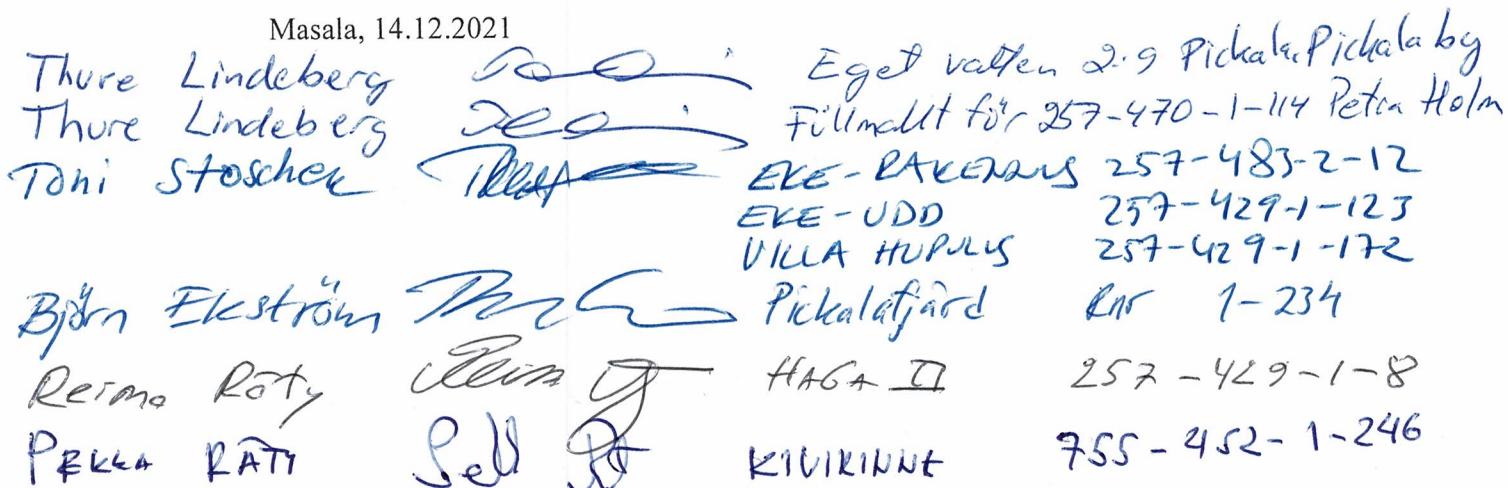 Masala, 14.12.2021
Thure Lindeberg Eget vatten 2:9 Pickala, Pickala by
Thure Lindeberg Füllmakt för 257-470-1-114 Petra Holm
Toni Stoschek EKE-RAKENNUS 257-483-2-12
EKE-UDD 257-429-1-123
VILLA HUPULUS 257-429-1-172
Björn Ekström Pickalafjärd Rnr 1-234
Reima Räty HAGA II 257-429-1-8
PEKKA RÄTY KIVIRINNE 755-452-1-246